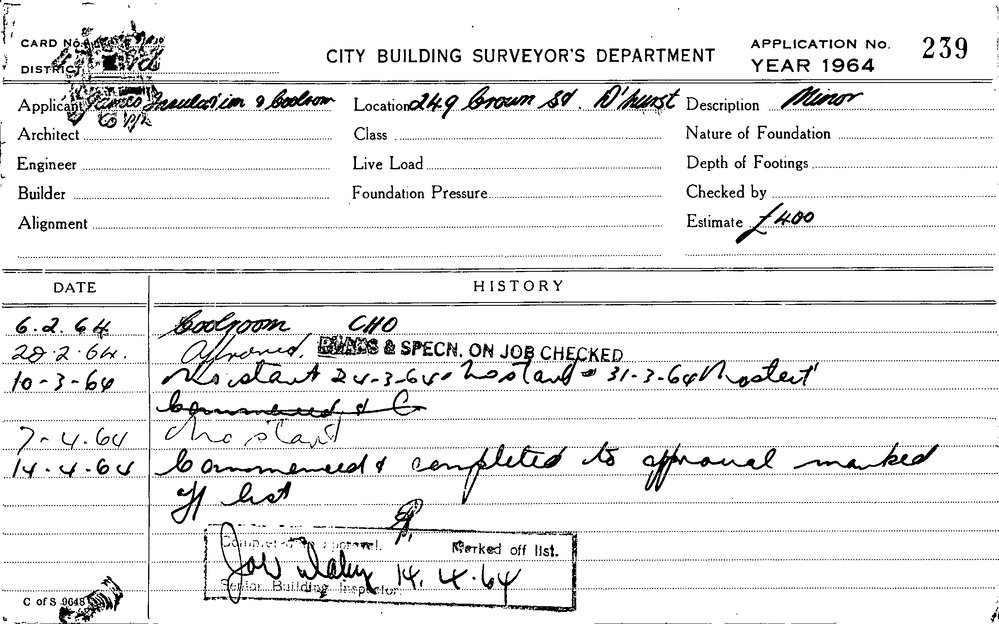 CARD No.
CITY BUILDING SURVEYOR'S DEPARTMENT
APPLICATION No. 239
DISTRICT
YEAR 1964
Applicant Insulation & Coolroom Location 249 Crown St. D'hurst Description Minor
Co P/L
Architect Class Nature of Foundation
Engineer Live Load Depth of Footings
Builder Foundation Pressure Checked by
Alignment Estimate £400
DATE HISTORY
6.2.64 Coolroom CHO
20.2.64. Approved. PLANS & SPECN. ON JOB CHECKED
10-3-64 No start 24-3-64 No start 31-3-64 No start
Commenced & C
7-4.64 No start
14.4.64 Commenced & completed to approval marked
off list
Completed to approval. Marked off list.
14.4.64
Senior Building Inspector.
C of S 9648